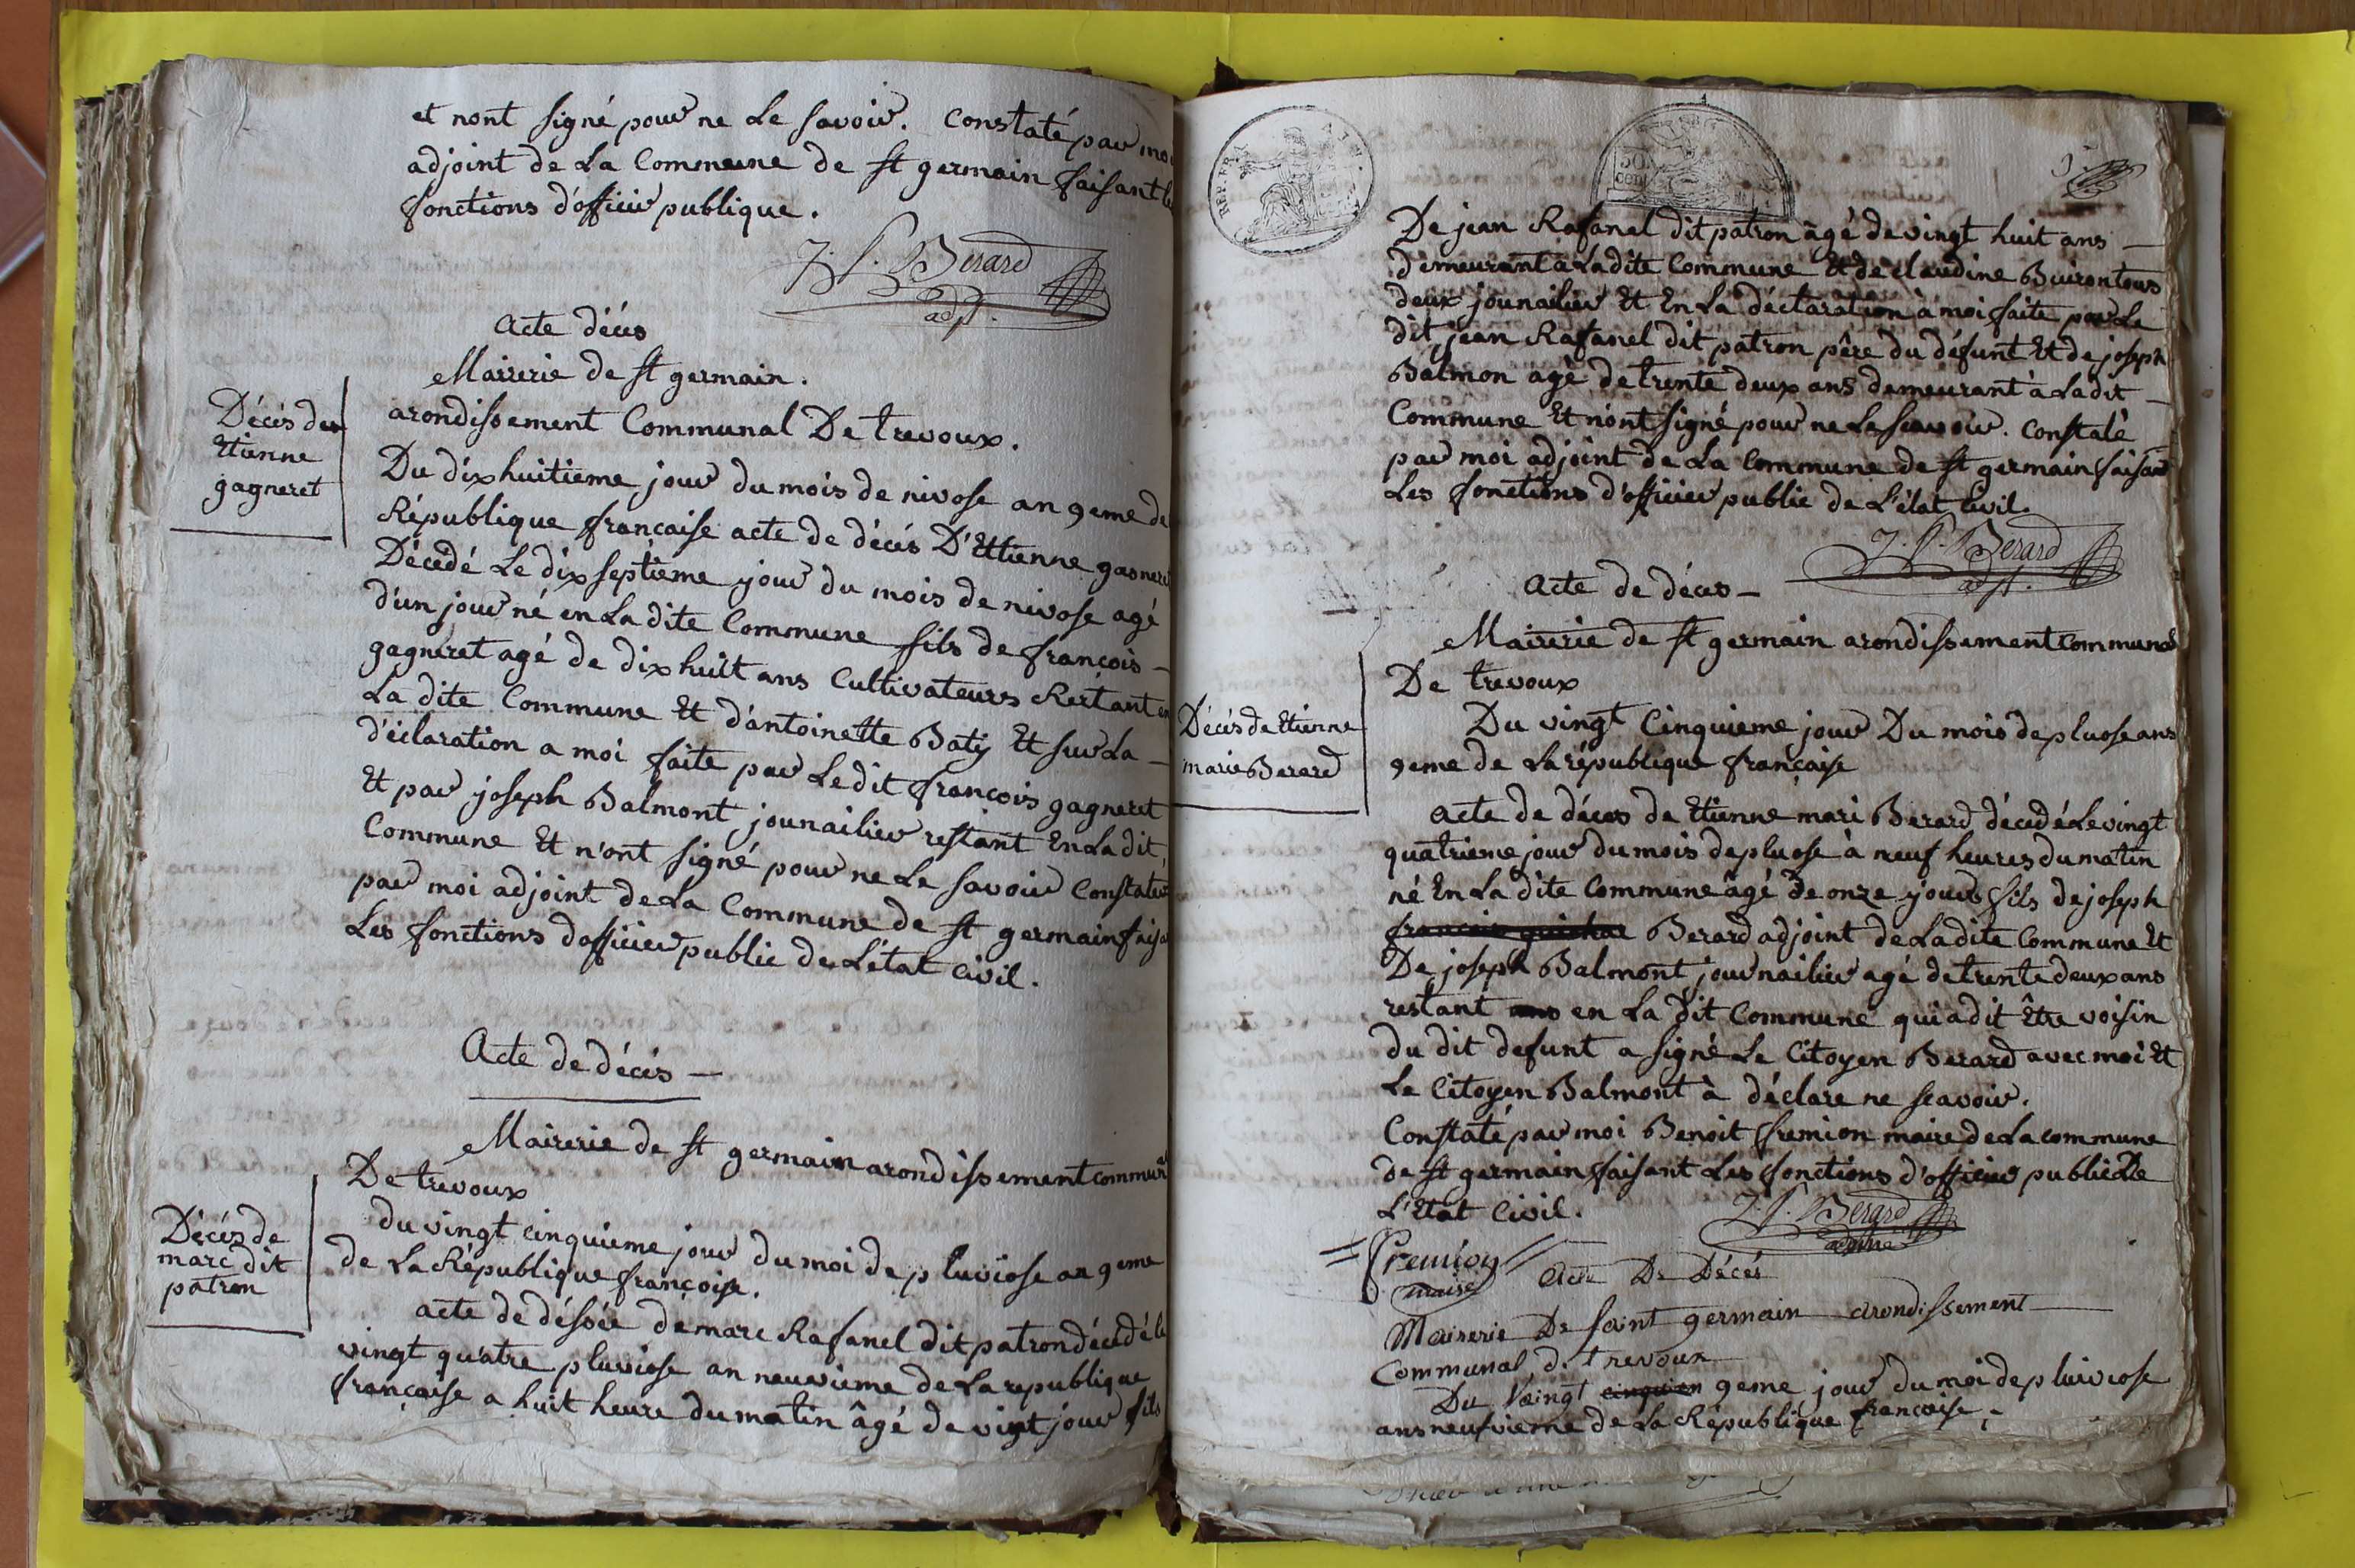 et nont signé pour ne le savoir. Constaté par moi
adjoint de la Commeune de st germain faisant les
fonctions d'officier publique.
J. P. Berard
adjt.
acte décés
Mairerie de st germain.
arondissement Communal De trevoux.
Décés de
Etienne
gagneret
Du dix huitieme jour du mois de nivose an 9eme de
République francaise acte de décés D'Ettienne gagneret
Décedé Le dix septieme jour du mois de nivose agé
d'un jour né en La dite Commune fils de françois -
gagneret agé de dix huilt ans Cultivateurs Restant en
La dite Commune Et d'antoinette Baty Et sur La -
d'éclaration a moi faite par Le dit francois gagneret
Et par joseph Balmont jounailier restant En La dit
Commune Et n'ont signé pour ne Le savoir Constater
par moi adjoint de La Commune de st germain faisa
Les fonctions d'officier public de L'état Civil.
Acte de décés -
Mairerie de st germain arondissement commun
De trevoux
Décés de
marc dit
patron
du vingt cinquieme jour du moi de pluviose an 9eme
de La République françoise.
acte de déssée de marc Rafanel dit patron décedé le
vingt quatre pluviose an neuvieme de La republique
française a huit heure du matin âgé de vigt jour fils
REP. FRA.
50
cent
De jean Rafanel dit patron âgé de vingt huit ans -
demeurant à La dite Commune Et de claudine Buiron tous
deux jounailier Et En La déclaration à moi faite par Le
dit jean Rafanel dit patron père du défunt Et de joseph
Balmon agé de trente deux ans demeurant à La dit -
Commune Et n'ont signé pour ne Le scavoir. Constaté
par moi adjoint de La Commune de st germain faisant
Les fonctions d'officier public de L'état Civil.
J. P. Berard
adjt.
acte de déces -
Mairerie de st germain arondissement communal
De trevoux
Décés de Etienne
marie Berard
Du vingt Cinquieme jour Du mois de pluose ans
9eme de La république française
acte de déces de Etienne mari Berard décedé Le vingt
quatrieme jour du mois de pluose à neuf heures du matin
né En La dite Commune âgé de onze jours fils de joseph
Berard adjoint de La dite Commune Et
De joseph Balmont journailier agé de trente deux ans
restant en La dit Commune qui a dit être voisin
du dit defunt a signé Le Citoyen Berard avec moi Et
Le Citoyen Balmont à déclare ne scavoir.
Constaté par moi Benoit fremion maire de La commune
de st germain faisant Les fonctions d'officier public De
L'Etat Civil.
J. P. Berard
fremion
maire
Acte De Décés
Mairerie De saint germain arondissement
Communal de trevoux
Du Vaingt cinquien 9eme jour du moi de pluiviose
ans neufvieme de La République francaise. -